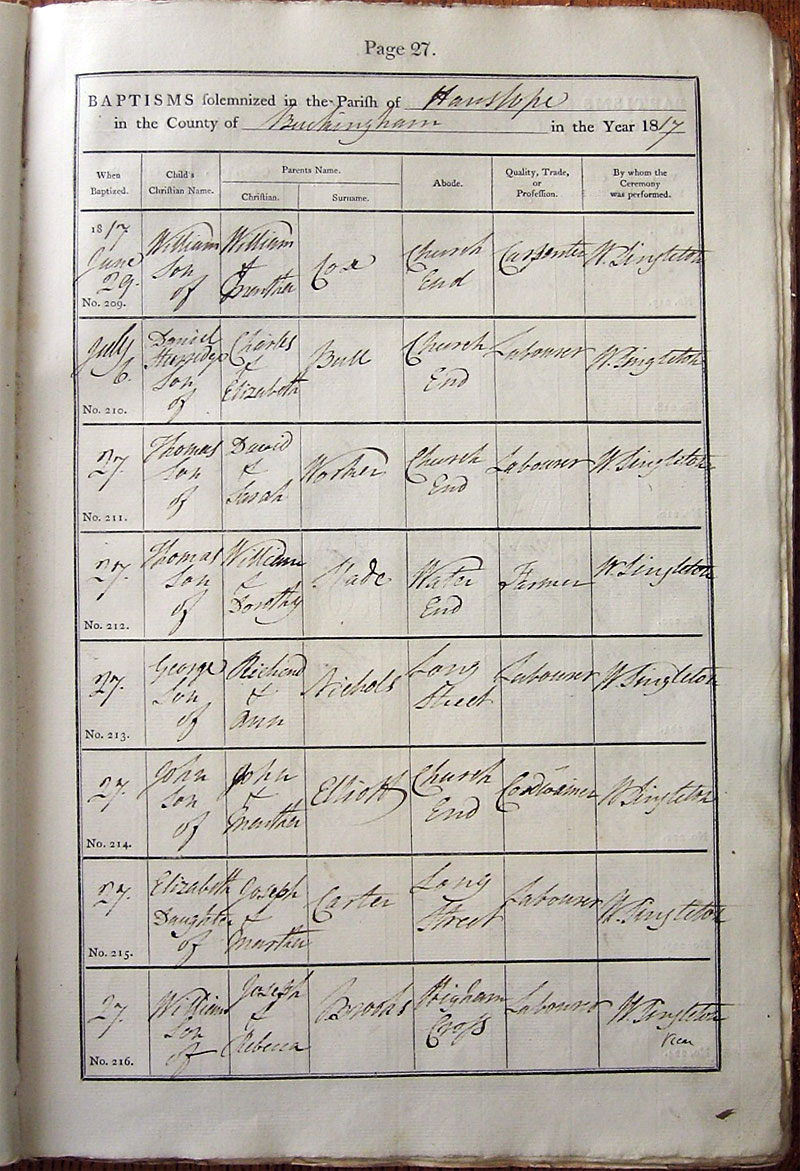 Page 27.
BAPTISMS solemnized in the Parish of Hanslope
in the County of Buckingham in the Year 1817
When Baptized.
Child's Christian Name.
Parents Name.
Christian.
Surname.
Abode.
Quality, Trade, or Profession.
By whom the Ceremony was performed.
1817
June
29.
No. 209.
William
Son
of
William
&
Marther
Cox
Church
End
Carpenter
W. Singleton
July
6.
No. 210.
Daniel
Son
of
Charles
&
Elizabeth
Bull
Church
End
Labourer
W. Singleton
27
No. 211.
Thomas
Son
of
David
&
Sarah
Church
End
Labourer
W Singleton
27.
No. 212.
Thomas
Son
of
William
&
Dorothy
Slade
Water
End
Farmer
W. Singleton
27.
No. 213.
George
Son
of
Richard
&
Ann
Nichols
Long
Street
Labourer
W Singleton
27.
No. 214.
John
Son
of
John
&
Marther
Elliott
Church
End
Cordwainer
W Singleton
27.
No. 215.
Elizabeth
Daughter
of
Joseph
&
Marther
Carter
Long
Street
Labourer
W. Singleton
27.
No. 216.
William
Son
of
Joseph
&
Rebecca
Brooks
Higham
Cross
Labourer
W. Singleton
Vicar